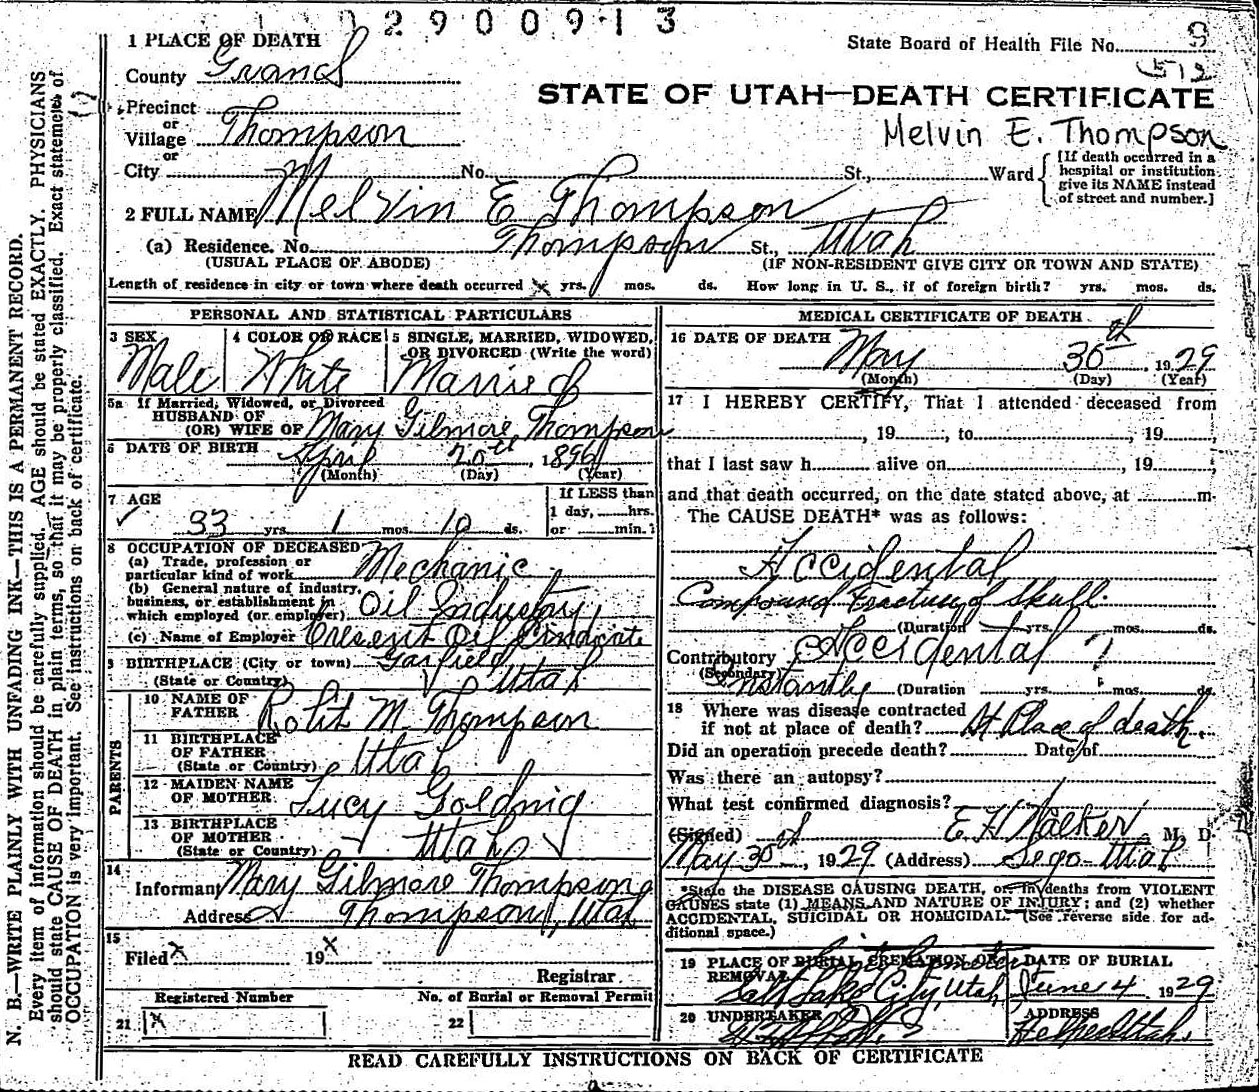 02900913
1 PLACE OF DEATH
State Board of Health File No. 9
County Grand
512
STATE OF UTAH—DEATH CERTIFICATE
Precinct
or
Village Thompson
or
Melvin E. Thompson
City No. St., Ward
[If death occurred in a
hospital or institution
give its NAME instead
of street and number.]
2 FULL NAME Melvin E Thompson
(a) Residence. No. Thompson St., Utah
(USUAL PLACE OF ABODE) (IF NON-RESIDENT GIVE CITY OR TOWN AND STATE)
Length of residence in city or town where death occurred x yrs. mos. ds. How long in U. S., if of foreign birth? yrs. mos. ds.
PERSONAL AND STATISTICAL PARTICULARS
3 SEX 4 COLOR OR RACE 5 SINGLE, MARRIED, WIDOWED,
OR DIVORCED (Write the word)
Male White Married
5a If Married, Widowed, or Divorced
HUSBAND OF
(OR) WIFE OF Mary Gilmore Thompson
6 DATE OF BIRTH April 20th, 1896
(Month) (Day) (Year)
7 AGE
If LESS than
1 day, hrs.
or min.?
33 yrs. 1 mos. 10 ds.
8 OCCUPATION OF DECEASED
(a) Trade, profession or
particular kind of work Mechanic
(b) General nature of industry,
business, or establishment in
which employed (or employer) Oil Industry
(c) Name of Employer Cresent Oil Sindicate
9 BIRTHPLACE (City or town) Garfield
(State or Country) Utah
PARENTS
10 NAME OF
FATHER Robt M. Thompson
11 BIRTHPLACE
OF FATHER
(State or Country) Utah
12 MAIDEN NAME
OF MOTHER Lucy
13 BIRTHPLACE
OF MOTHER
(State or Country) Utah
14
Informant Mary Gilmore Thompson
Address Thompson, Utah
15
Filed x 19 x
Registrar
Registered Number No. of Burial or Removal Permit
21 x 22
MEDICAL CERTIFICATE OF DEATH
16 DATE OF DEATH May 30th, 1929
(Month) (Day) (Year)
17 I HEREBY CERTIFY, That I attended deceased from
, 19 , to , 19 ,
that I last saw h alive on , 19 ,
and that death occurred, on the date stated above, at m.
The CAUSE DEATH* was as follows:
Accidental
Compound Fracture of Skull
(Duration yrs. mos. ds.
Contributory Accidental ?
(Secondary)
Instantly (Duration yrs. mos. ds.
18 Where was disease contracted
if not at place of death? At Place of death.
Did an operation precede death? Date of
Was there an autopsy?
What test confirmed diagnosis?
(Signed) E. H Walker M. D.
May 30th, 1929 (Address) Sego Utah
*State the DISEASE CAUSING DEATH, or in deaths from VIOLENT
CAUSES state (1) MEANS AND NATURE OF INJURY; and (2) whether
ACCIDENTAL, SUICIDAL OR HOMICIDAL. (See reverse side for ad-
ditional space.)
19 PLACE OF BURIAL CREMATION OR DATE OF BURIAL
REMOVAL
Salt Lake City, Utah June 4 1929
20 UNDERTAKER ADDRESS
Helper Utah.
READ CAREFULLY INSTRUCTIONS ON BACK OF CERTIFICATE
N. B.—WRITE PLAINLY WITH UNFADING INK—THIS IS A PERMANENT RECORD.
Every item of information should be carefully supplied. AGE should be stated EXACTLY. PHYSICIANS
should state CAUSE OF DEATH in plain terms, so that it may be properly classified. Exact statement of
OCCUPATION is very important. See instructions on back of certificate.